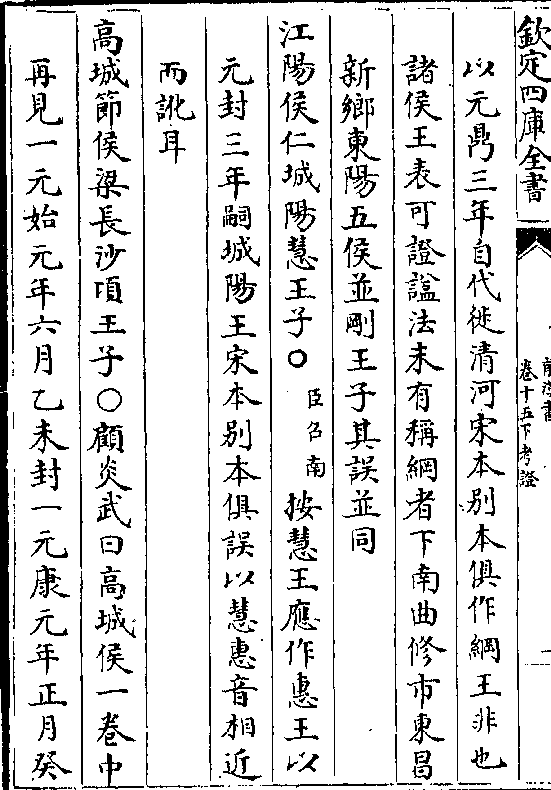 欽定四庫全書
前漢書
卷十五下考證
以元鼎三年自代徙清河宋本别本俱作綱王非也
諸侯王表可證諡法未有稱綱者下南曲修市東昌
新鄉東陽五侯並剛王子其誤並同
江陽侯仁城陽慧王子○臣召南按慧王應作惠王以
元封三年嗣城陽王宋本别本俱誤以慧惠音相近
而訛耳
高城節侯梁長沙頃王子○顧炎武曰高城侯一卷中
再見一元始元年六月乙未封一元康元年正月癸